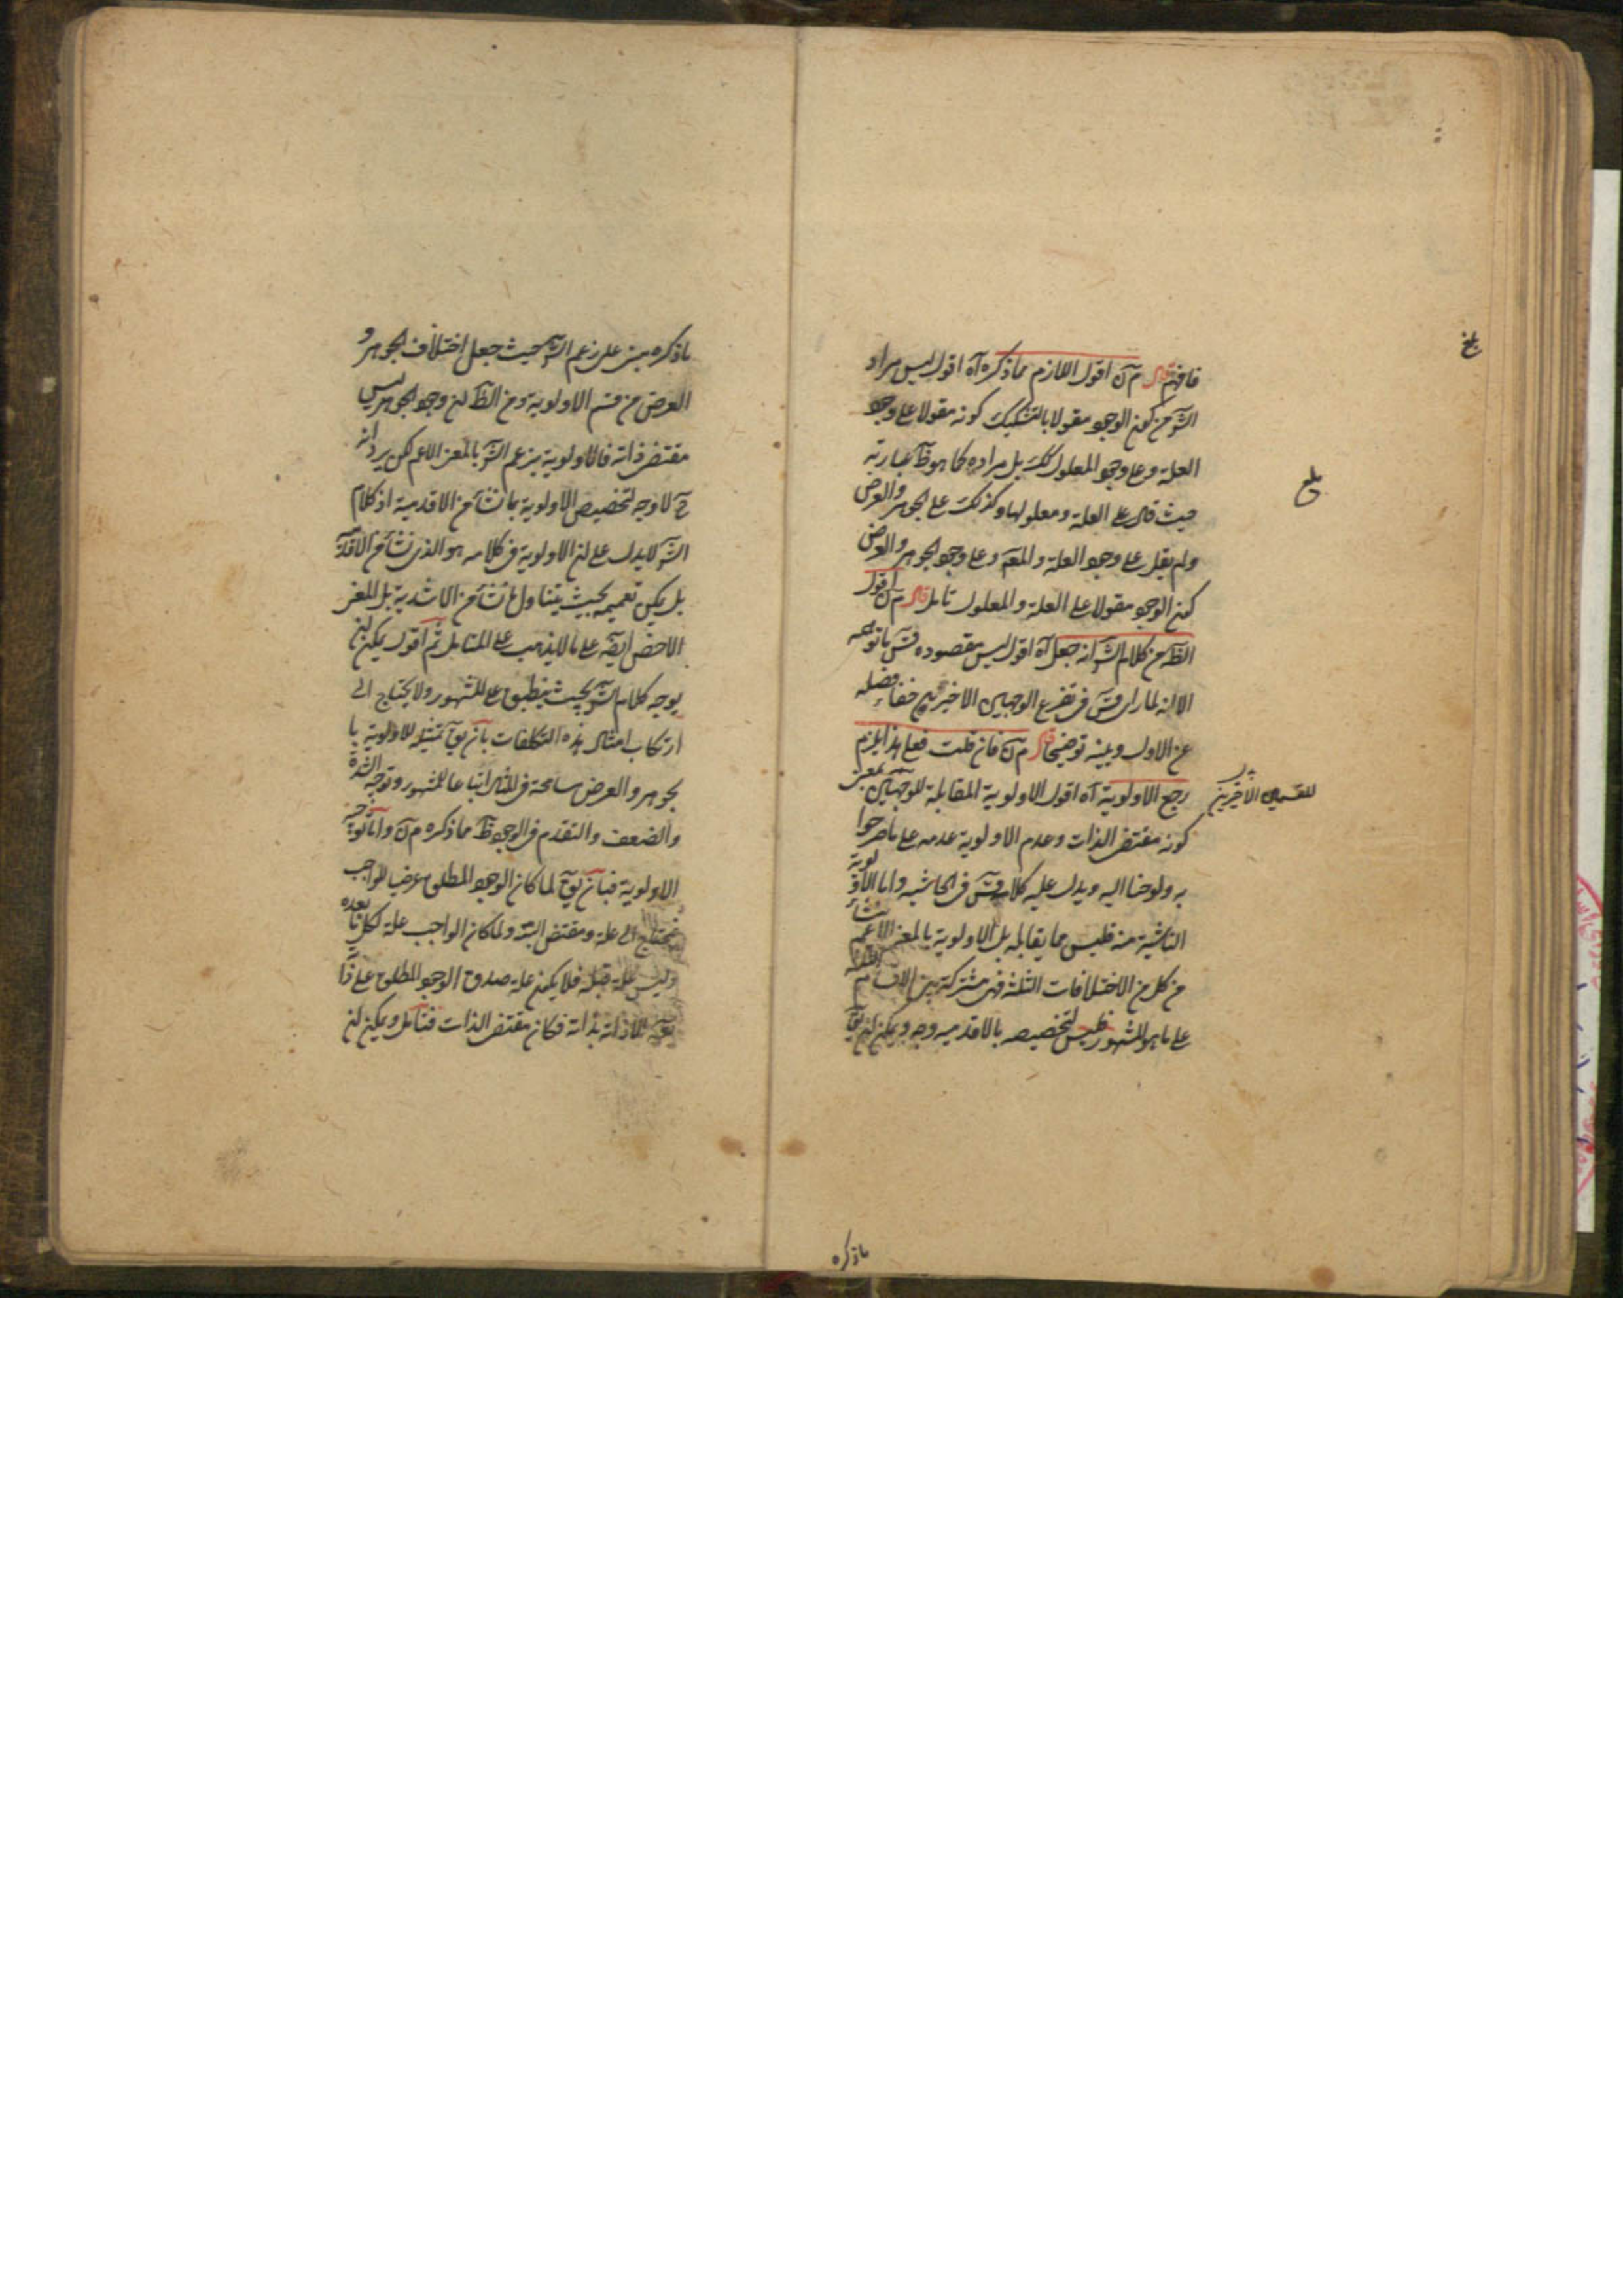 فافهم قال م ن اقول اللازم مما ذكره آه اقول ليس مراد
الش من كون الوجود مقولا بالتشكيك كونه مقولا على وجود
العلة وعلى وجود المعلول كك بل مراده كما هو ظ عبارته
حيث قال على العلة ومعلولها وكذلك على الجوهر والعرض
ولم يقل على وجود العلة والمعلـ وعلى وجود الجوهر والعرض
كون الوجود مقولا على العلة والمعلول تامل قال م ن اقول
الظ من كلام الش انه جعل آه اقول ليس مقصوده قس ما توهمه
الا انه لما راى قس في تفريع الوجهين الاخيرين خفاء فصله
عن الاول وبينه توضيحا قال م ن فان قلت فعلى هذا يلزم
رجع الاولوية آه اقول الاولوية المقابلة للوجهين بمعنى
للقسمين الاخيرين
كونه مقتضى الذات وعدم الاولوية عدمه على ما صرحوا
به ولوحنا اليه ويدل عليه كلام قس في الحاشيه واما الاولوية
الناشية منه فليس مما يقابله بل الاولوية بالمعنى الاعم تنشأ
من كل من الاختلافات الثلثة فهي مشتركة بين الاقسام الثلثة
على ما هو المشهور فليس لتخصيصه بالاقدميه وجه ويمكن ان يق
بلغ
ماذكره
ماذكره مبنى على زعم الش حيث جعل اختلاف الجوهر و
العرض من قسم الاولوية ومن الظ ان وجود الجوهر ليس
مقتضى ذاته فالاولوية بزعم الش بالمعنى الاعم لكن يرد انه
ح لا وجه لتخصيص الاولوية بما نشأ من الاقدمية اذ كلام
الش لا يدل على ان الاولوية في كلامه هو الذي نشأ من الاقدمية
بل يمكن تعميمه بحيث يتناول ما نشأ من الاشدية بل المعنى
الاخص ايضا على ما لا يذهب على المتامل ثم اقول يمكن ان
يوجه كلام الش بحيث ينطبق على المشهور ولا يحتاج الى
ارتكاب امثال هذه التكلفات بان يق تمثيله للاولوية با
لجوهر والعرض مسامحة في المثال اتباعا للمشهور وتوجه الشدة
والضعف والتقدم في الوجود ظ مما ذكره م ن واما توجيه
الاولوية فبان يق لما كان الوجود المطلق عرضيا للواجب
فيحتاج الى علة ومقتضى البتة ولما كان الواجب علة لكل ما بعده
وليس علة قبله فلا يكون علة صدق الوجود المطلق على ذا
ته الا ذاته بذاته فكان مقتضى الذات فتامل ويمكن ان